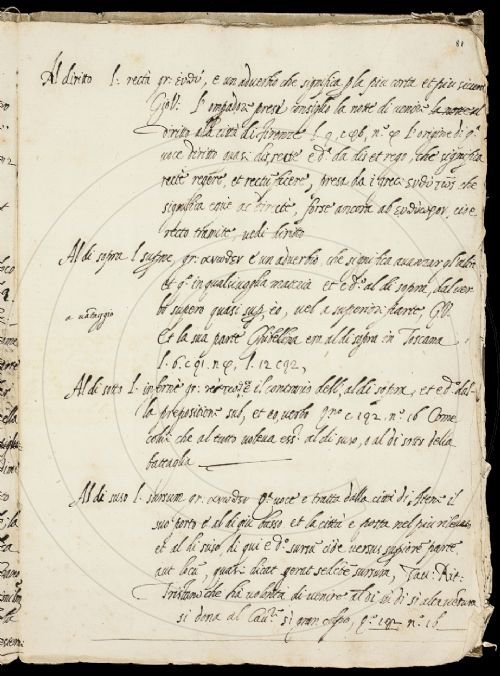 81
Al diritto l: recte gr: ευδυ, e un adverbio che significa la piu corta et piu sicura
Gio: V: l'omp.dre prese consiglio la notte di venire
diritto alla città di firenze l. 9. c. 46, n.º φ l'origine di q.ª
voce diritto quasi disrecte e d.ª da dis et rego, che significa
recte regere, et recte facere, presa da i greci che
significa eque ac directe, forse ancora ab cioe
recto tramite, vedi diritto
Al di sopra l. supra, gr: ανωδεν e un adverbio, che significa avanzar gl'altri
et q.º in qualsivoglia materia et e d.º al di sopra, dal ver
a vantaggio
bo supero quasi sup. eo, vel a superiori parte, G.V.
Et la sua parte Ghibellina era al di sopra in Toscana
l. 6. c. 91. n. φ, l. 12 c. 92,
Al di sotto l. inferne gr: il contrario dell', al di sopra, et e d.º dal-
la prepositione sub, et eo, verbo c. 192. n.º 16 Come
che al tutto voleva ess.r al di suso, o al di sotto della
battaglia
Al di suso l. sursum gr: ανωδεν q.ª voce e tratta dalla città di il
suo porto e al di giu basso et la città e posta nel piu rilevato
et al di suso, di qui e d.º sursu cioe versus superiore parte
aut locu, quasi dicat sursum, Tav: Rit:
Tristano che ha volontà di venire al di su di si alta ventura
si dona al Cav: si gran colpo, c. 192 n.º 16